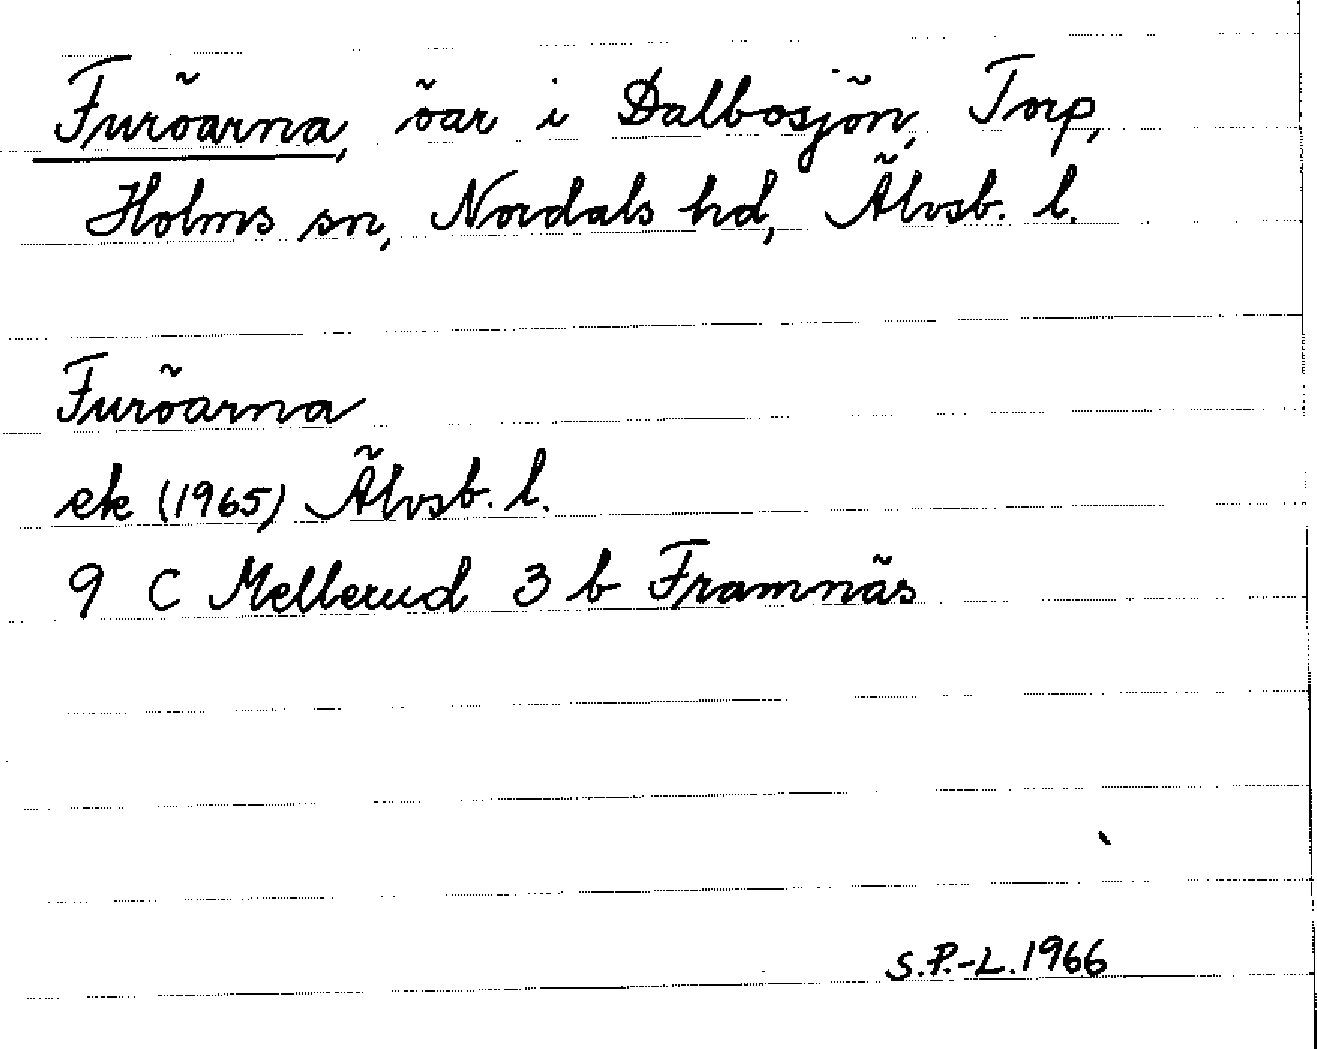 Furöarna, öar i Dalbosjön, Torp,
Holms sn, Nordals hd, Älvsb. l.
Furöarna
ek (1965) Älvsb. l.
9 C Mellerud 3 b Framnäs
S.P.-L. 1966